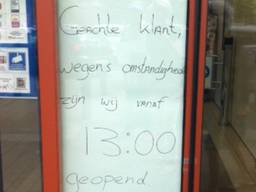 Geachte klant,
wegens omstandighede
zijn wij vanaf
13:00
geopend